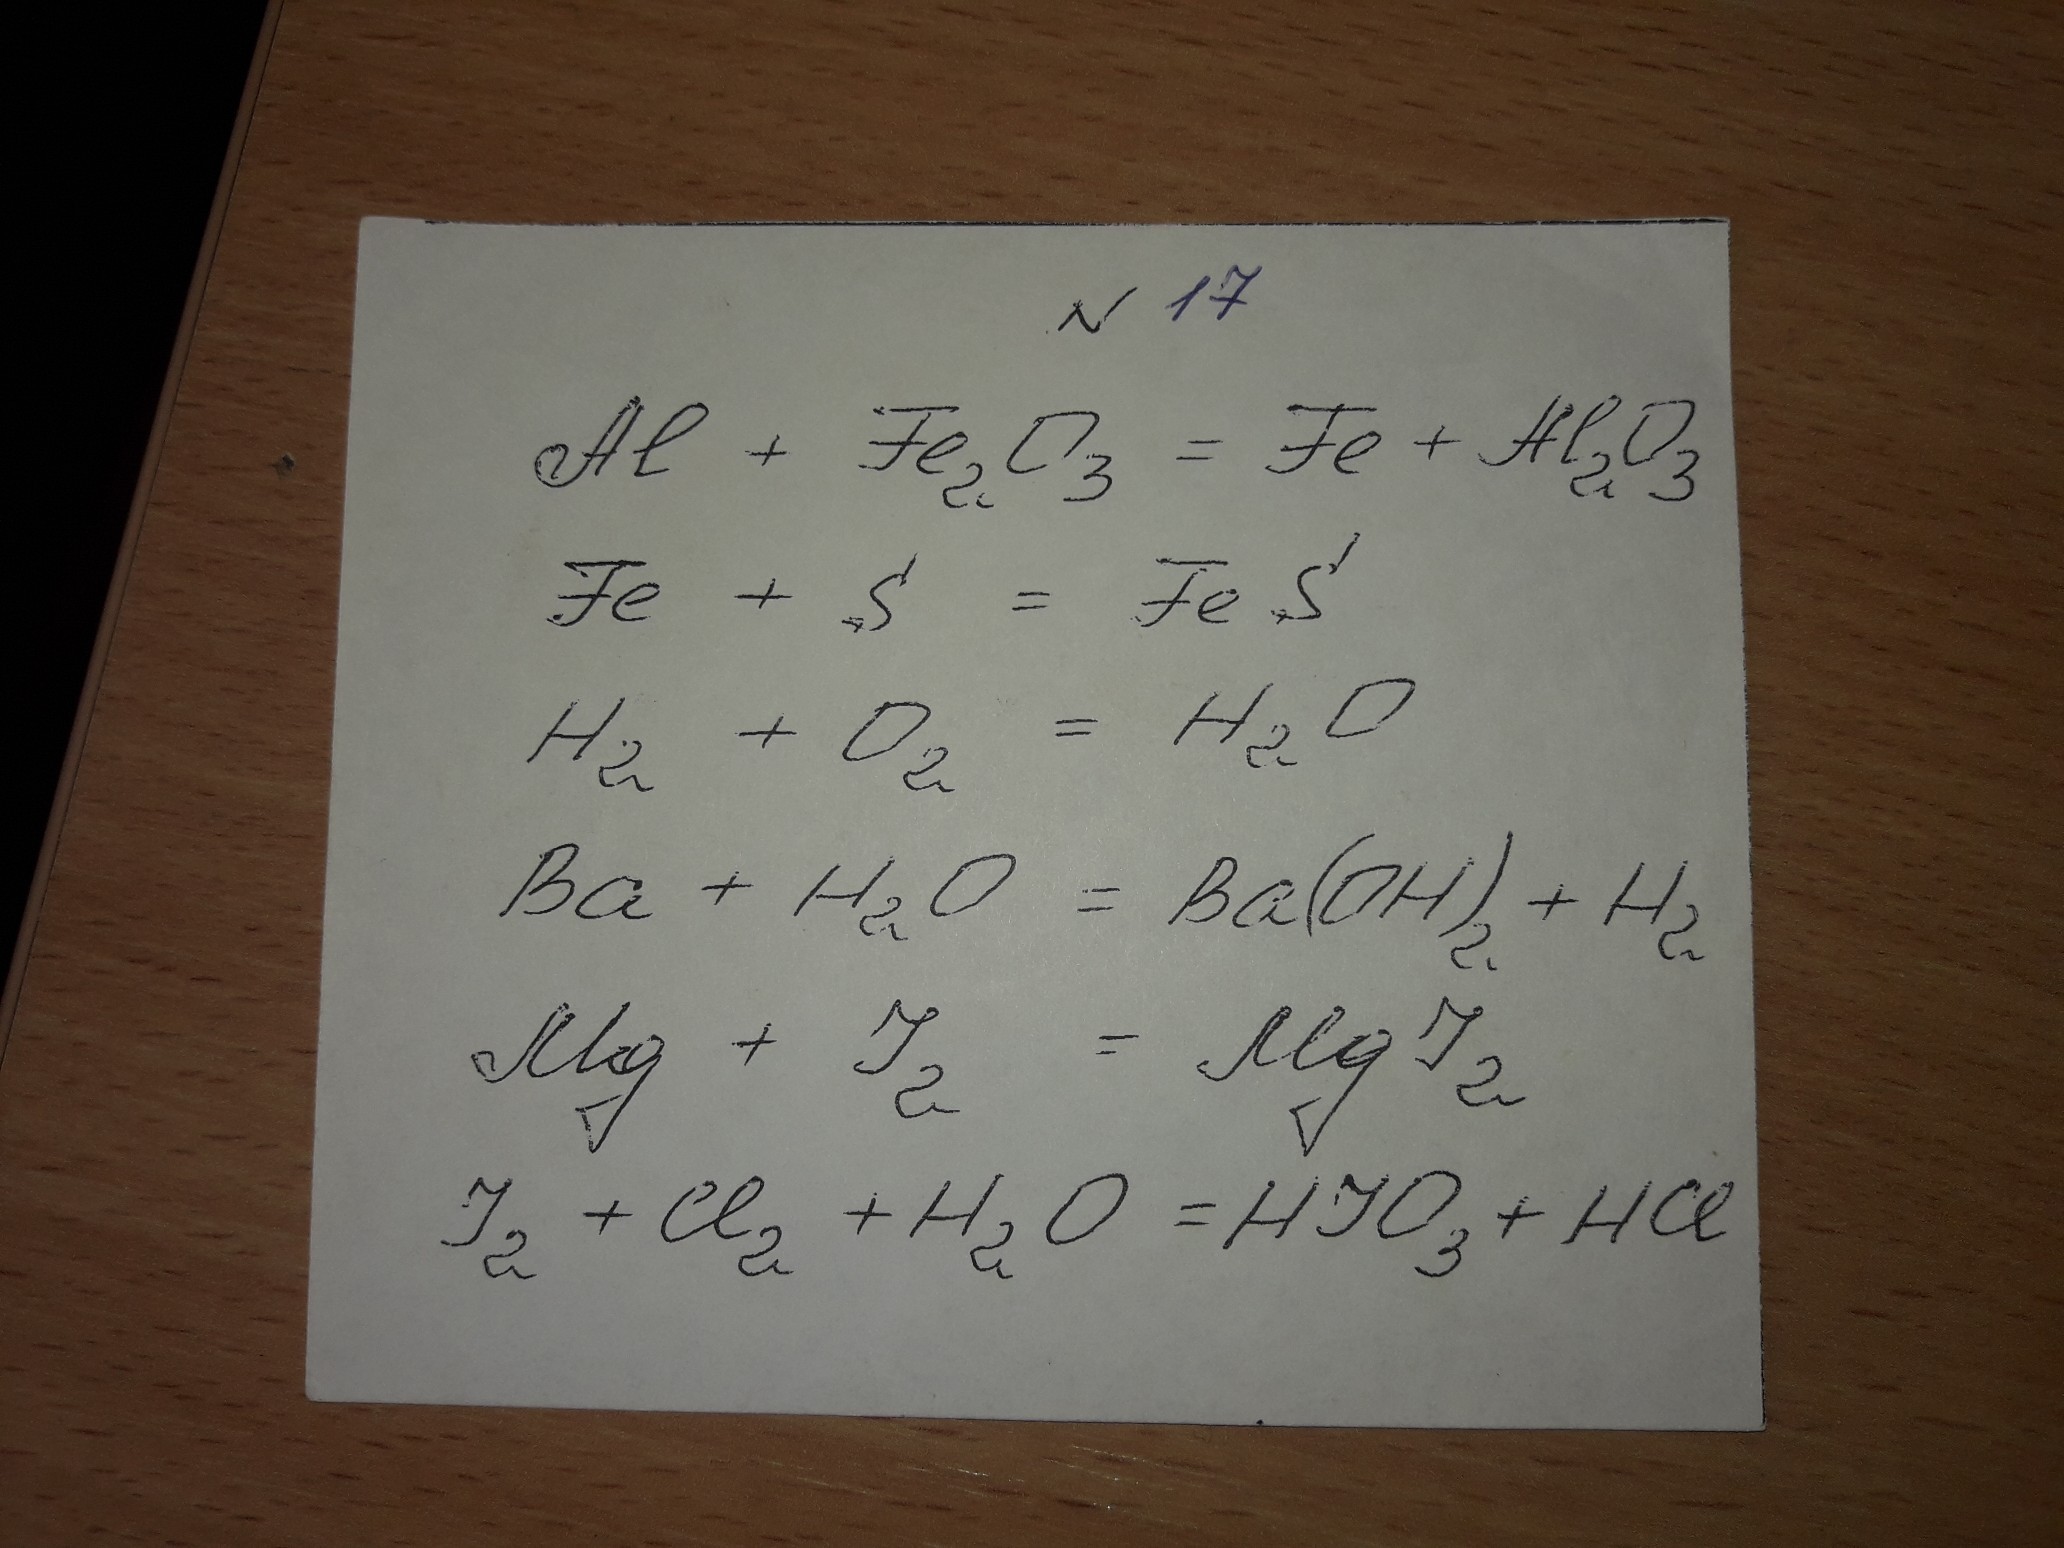 N 17
Al + Fe₂O₃ = Fe + Al₂O₃
Fe + S = FeS
H₂ + O₂ = H₂O
Ba + H₂O = Ba(OH)₂ + H₂
Mg + J₂ = MgJ₂
J₂ + Cl₂ + H₂O = HJO₃ + HCl